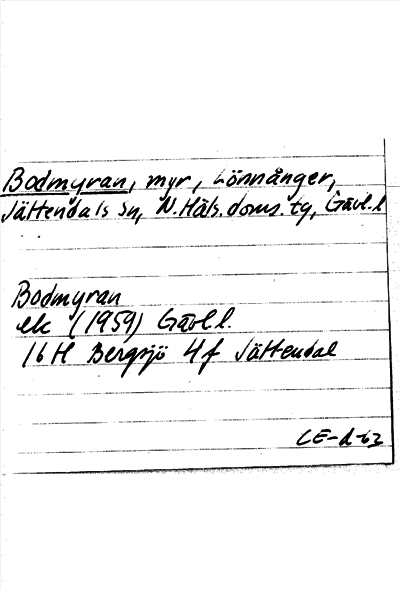 Bodmyran, myr, Lönnånger,
Jättendals sn, N. Häls. doms. tg, Gävl. l
Bodmyran
ek (1959) Gävl l.
16 H Bergsjö 4f Jättendal
CE-d-63